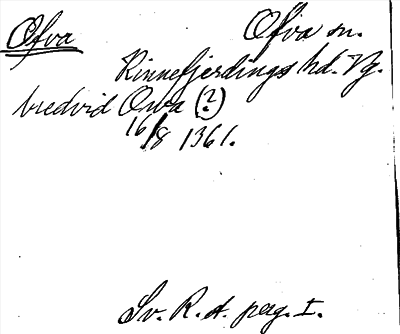 Öfva Öfva sn.
Kinnefjerdings hd. Vg.
bredvid Orva (?)
16/8 1361.
Sv. R. A. pag. I.